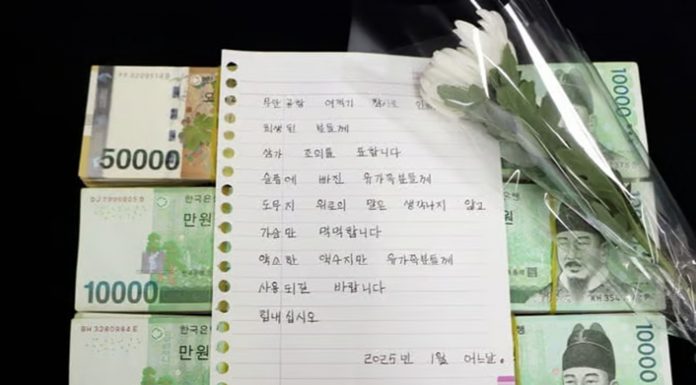 무안공항 여객기 참사로 인해
희생된 분들께
삼가 조의를 표합니다
슬픔에 빠진 유가족분들께
도무지 위로의 말은 생각나지 않고
가슴만 먹먹합니다
약소한 액수지만 유가족분들께
사용되길 바랍니다
힘내십시오
2025년 1월 어느날.
50000
한국은
만원
DJ 7990805 B
10000
한국은
만원
10000
10000